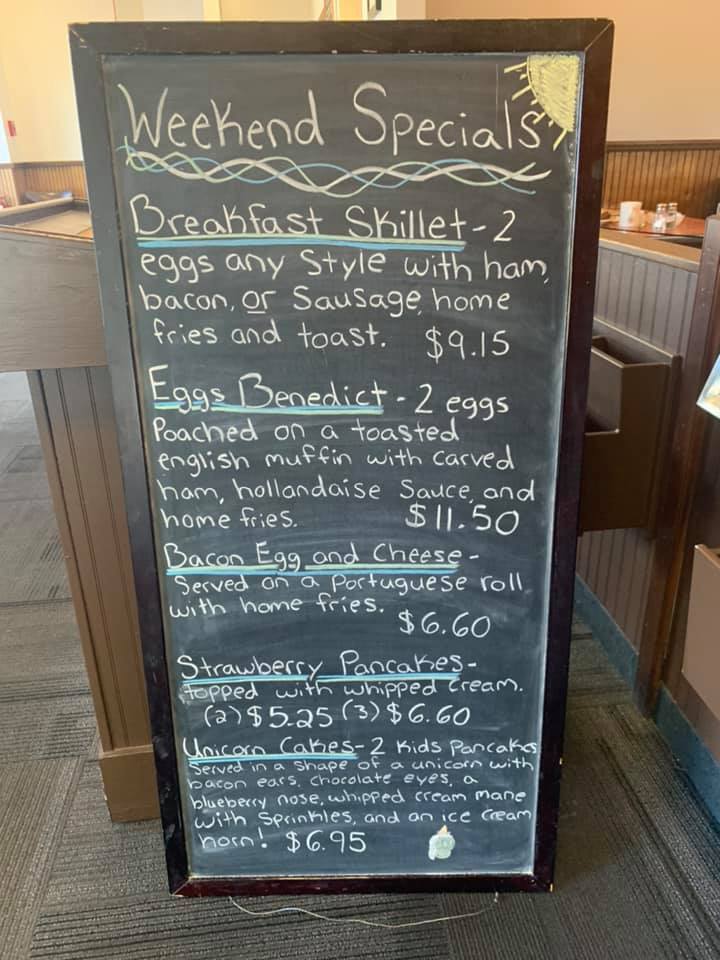 Weekend Specials
Breakfast Skillet - 2
eggs any Style with ham,
bacon, or Sausage, home
fries and toast. $9.15
Eggs Benedict - 2 eggs
Poached on a toasted
english muffin with carved
ham, hollandaise Sauce, and
home fries. $11.50
Bacon Egg and Cheese -
Served on a Portuguese roll
with home fries.
$6.60
Strawberry Pancakes -
topped with whipped cream.
(2) $5.25 (3) $6.60
Unicorn Cakes - 2 Kids Pancakes
Served in a shape of a unicorn with
bacon ears, chocolate eyes, a
blueberry nose, whipped cream mane
with Sprinkles, and an ice cream
horn! $6.95